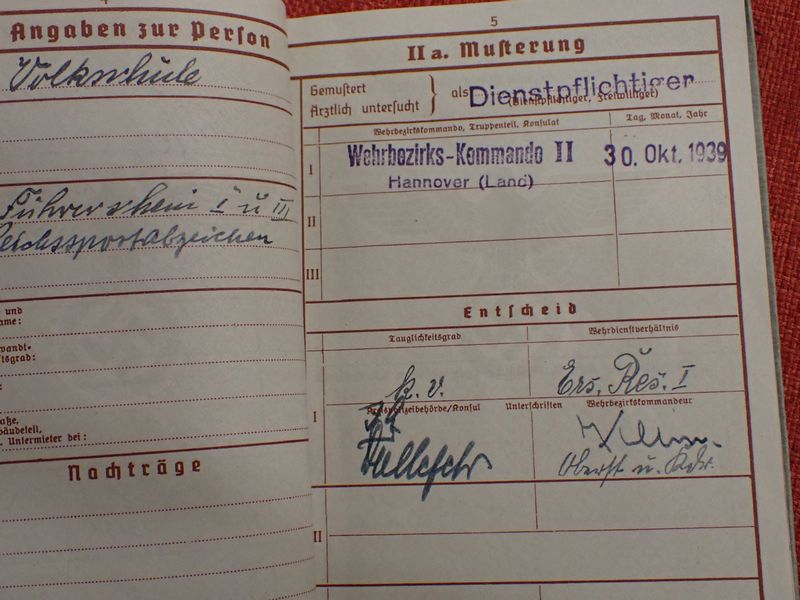 Angaben zur Person
Volksschule
Führerschein I u III
Reichssportabzeichen
und
ame:
wandt-
tsgrad:
aße,
bäudeteil,
Untermieter bei:
Nachträge
5
II a. Musterung
Gemustert
Ärztlich untersucht } als Dienstpflichtiger
(Dienstpflichtiger, Freiwilliger)
Wehrbezirkskommando, Truppenteil, Konsulat Tag, Monat, Jahr
I Wehrbezirks-Kommando II 30. Okt. 1939
Hannover (Land)
II
III
Entscheid
Tauglichkeitsgrad Wehrdienstverhältnis
k. v. Ers. Res. I
Kreispolizeibehörde/Konsul Unterschriften Wehrbezirkskommandeur
I
Oberst u. Kdr.
II